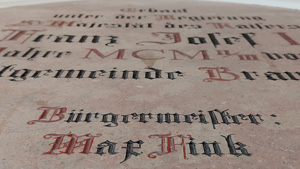 Erbaut
unter der Regierung
Majestät des Kaisers
Franz Josef I
Jahre MCM im
tgemeinde Brau
Bürgermeister:
Max Fink